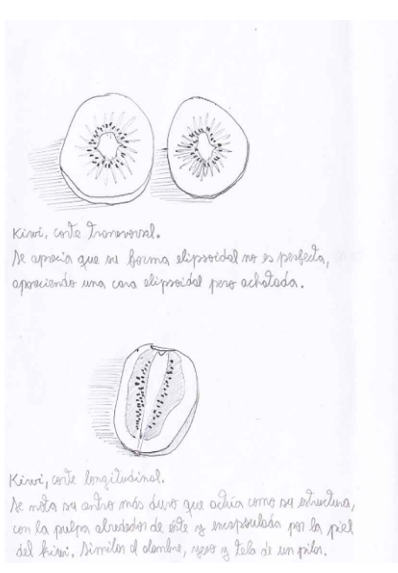 Kiwi, corte transversal.
Se aprecia que su forma elipsoidal no es perfecta,
apareciendo una cara elipsoidal pero achatada.
Kiwi, corte longitudinal.
Se nota su centro más duro que actúa como su estructura,
con la pulpa alrededor de este y encapsulada por la piel
del kiwi. Similar al alambre, yeso y tela de un pilar.